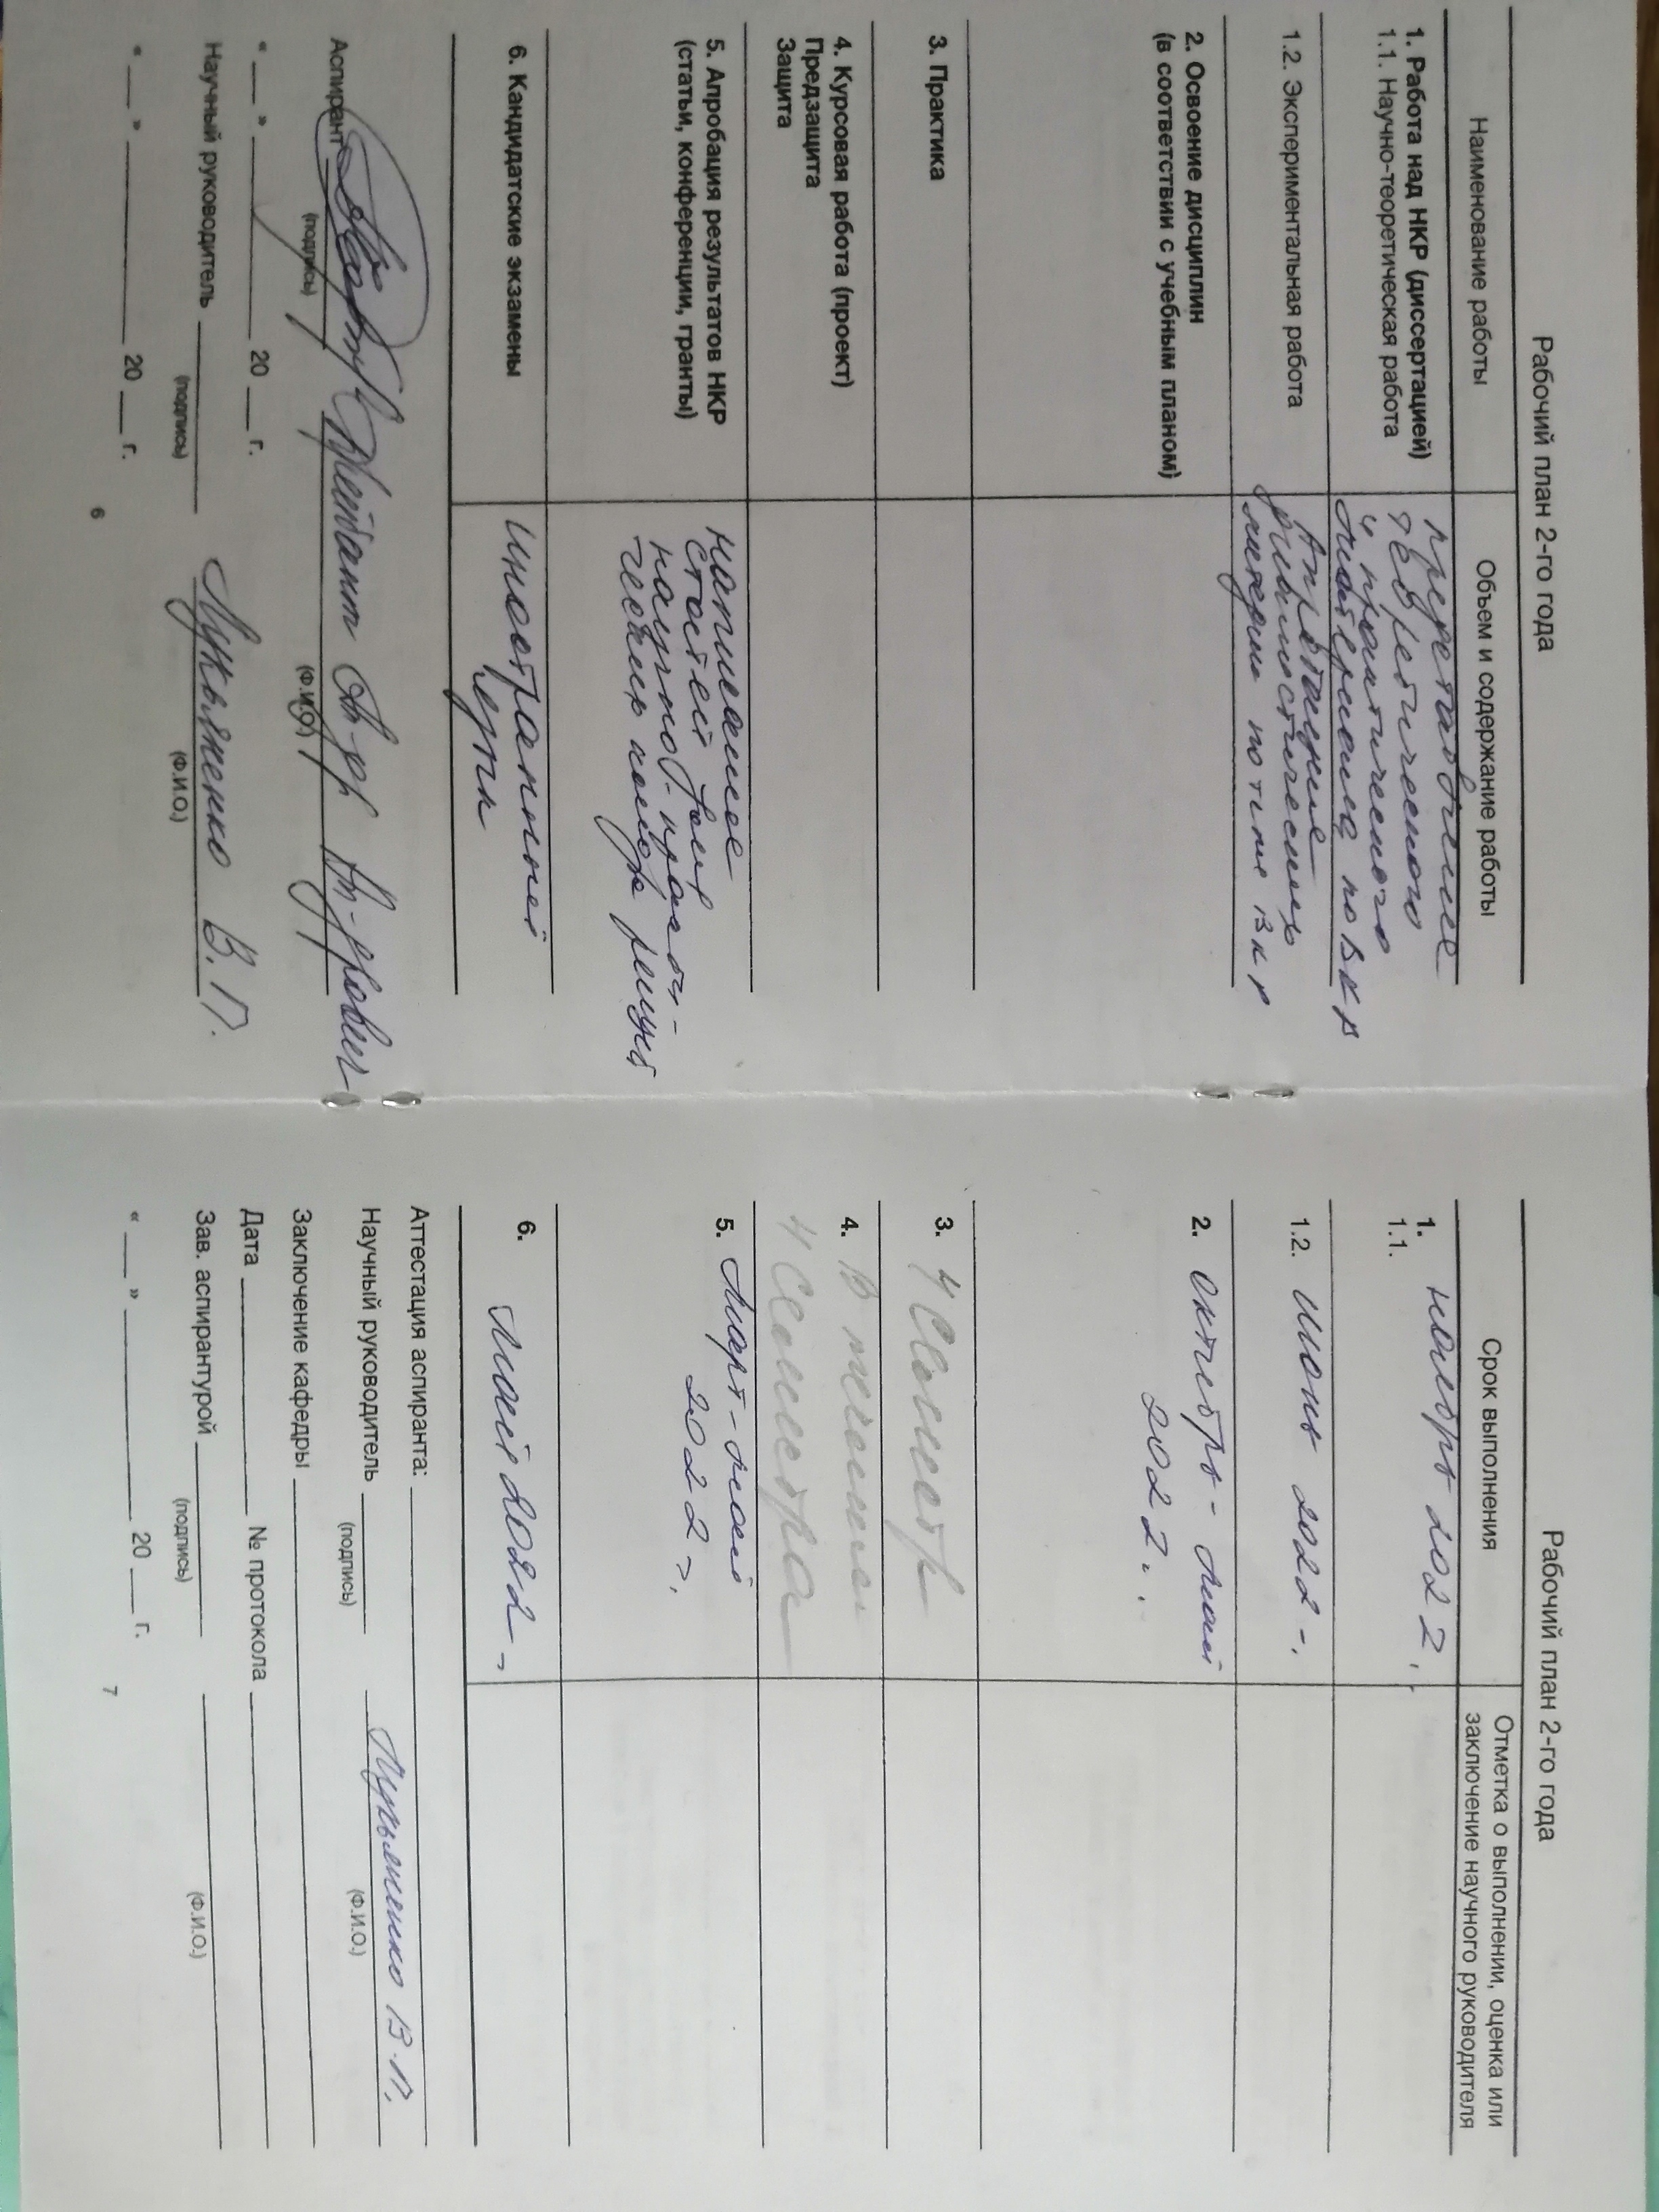 Рабочий план 2-го года
Наименование работы
Объем и содержание работы
1. Работа над НКР (диссертацией)
1.1. Научно-теоретическая работа
представление
теоретического
и практического
материала по ВКР
1.2. Экспериментальная работа
материи по теме ВКР
2. Освоение дисциплин
(в соответствии с учебным планом)
3. Практика
4. Курсовая работа (проект)
Предзащита
Защита
5. Апробация результатов НКР
(статьи, конференции, гранты)
написание
статей для
научно-практи-
ческих конфер
6. Кандидатские экзамены
иностранный
язык
Аспирант
(подпись)
(Ф.И.О.)
« __ » ________ 20 __ г.
Научный руководитель
Лукьяненко В.П.
(подпись)
(Ф.И.О.)
« __ » ________ 20 __ г.
6
Рабочий план 2-го года
Срок выполнения
Отметка о выполнении, оценка или
заключение научного руководителя
1.
1.1.
ноябрь 2022
1.2. июнь 2022 г.
2. октябрь - май
2022
3. 4 семестр
4. В течение
4 семестра
5. Март - май
2022 г.
6. Май 2022 г
Аттестация аспиранта:
Научный руководитель
Лукьяненко В.П.
(подпись)
(Ф.И.О.)
Заключение кафедры
Дата ________ № протокола
Зав. аспирантурой
(подпись)
(Ф.И.О.)
« __ » ________ 20 __ г.
7